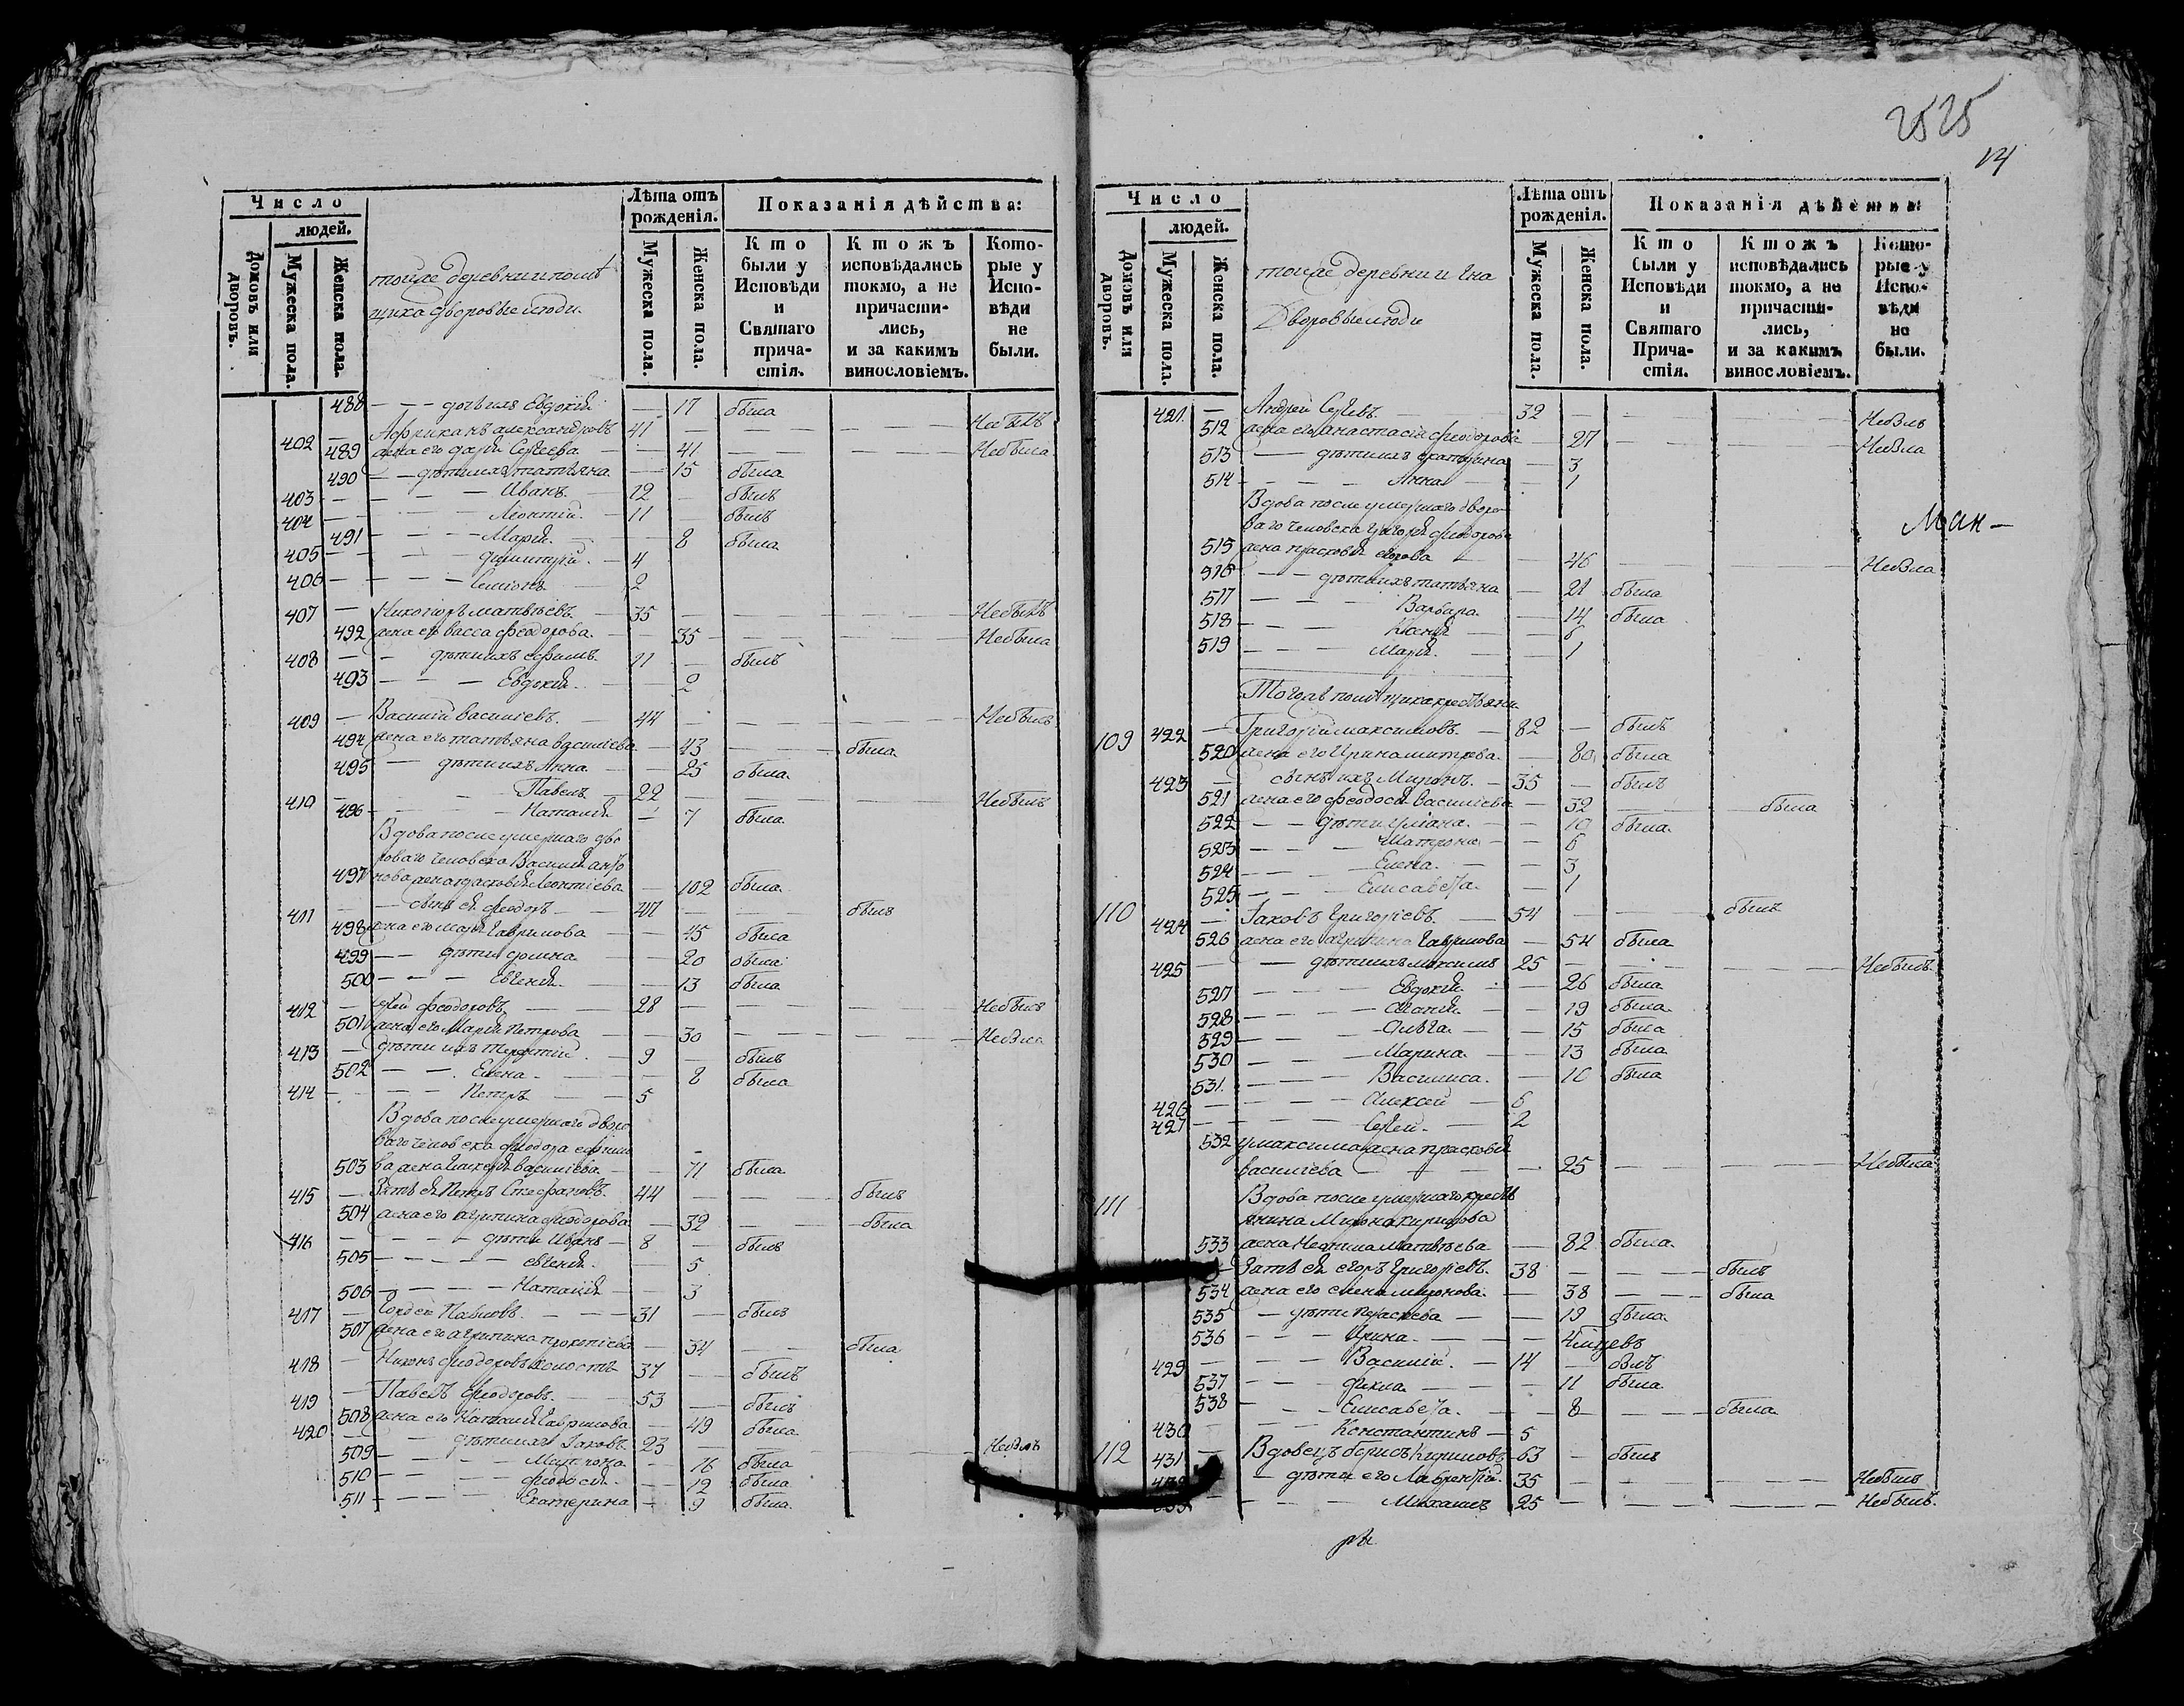 Число
людей.
Домовъ или дворовъ.
Мужеска пола.
Женска пола.
тойже деревни и помѣ
щика дворовые люди.
Лѣта отъ рожденія.
Мужеска пола.
Женска пола.
Показанія дѣйства:
Кто были у Исповѣди и Святаго причастія.
Ктожъ исповѣдались токмо, а не причастились, и за какимъ винословіемъ.
Которые у Исповѣди не были.
488 — — дочь ихъ Евдокія — 17 была
402 — Африканъ александровъ 41 — — — Небылъ
489 жена его дарія Сергеева — 41 — — — Небыла
490 — — дѣти ихъ татьяна — 15 была
403 — — — Иванъ 12 — былъ
404 — — — Леонтій 11 — былъ
491 — — — Марія 8 была
405 — — — димитрій 4
406 — — — Симіонъ 2
407 — Никифоръ матвѣевъ 35 — — — Небылъ
492 жена его васса феодорова — 35 — — Небыла
408 — — дѣти ихъ ефимъ 11 — былъ
493 — — — Евдокія — 2
409 — Василій василіевъ 44 — — — Небылъ
494 жена его татьяна василіева — 43 — — была
495 — дѣти ихъ Анна — 25 была
410 — — Павелъ — 22 — — — Небылъ
496 — — — Наталія — 7 была
Вдова после умершаго дво
роваго человека Василія анто
497 нова жена парасковія Леонтіева — 102 была
411 — — сынъ ея феодоръ — 47 — — былъ
498 жена его марія Гаврилова — 45 была
499 — — дѣти — 20 была
500 — — — Евгенія — 13 была
412 — феодоровъ 28 — — — Небылъ
501 жена его Марія Петрова — 30 — — — Небыла
413 — дѣти ихъ терентій — 9 — былъ
502 — — Елена — 8 была
414 — — — Петръ — 5
Вдова после умершаго дворо
ваго человека феодора
503 ва жена Гликерія василіева — 71 была
415 — Зять ея Петръ Стефановъ 44 — — былъ
504 жена его агрипина феодорова — 32 — — была
416 — — — дѣти Иванъ — 8 — былъ
505 — — — евгенія — 5
506 — — — Наталія — 3
417 — Гордей Павловъ — 31 — былъ
507 жена его агрипина прокопіева — 34 — — была
418 — Никонъ феодоровъ холостъ 37 — былъ
419 — Павелъ феодоровъ — 53 — былъ
508 жена его Наталія Гаврилова — 49 была
420 — — дѣти ихъ Іаковъ 23 — — — Небылъ
509 — — — Матрона — 16 была
510 — — — феодосія — 12 была
511 — — — Екатерина — 9 была
2525
14
Число
людей.
Домовъ или дворовъ.
Мужеска пола.
Женска пола.
тойже деревни и
Дворовые люди
Лѣта отъ рожденія.
Мужеска пола.
Женска пола.
Показанія дѣйства
Кто были у Исповѣди и Святаго Причастія.
Ктожъ исповѣдались токмо, а не причастились, и за какимъ винословіемъ.
Которые у Исповѣди не были.
421 — Андрей Сергѣевъ 32 — — — Небылъ
512 жена его анастасія феодорова — 27 — — — Небыла
513 — дѣти ихъ екатерина — 3
514 — — — Анна — 1
Вдова после умершаго дворо
ваго человека Григорія феодорова
515 жена прасковія егорова — 46 — — — Небыла
516 — — дѣти ихъ татьяна — 21 была
517 — — — Варвара — 14 была
518 — — — Ксенія — 6
519 — — — Марія — 1
Мак—
Тогожъ помѣщика крестьяне
109 422 — Григорій максимовъ — 82 — былъ
520 жена его Ирина митрова — 80 была
423 — сынъ ихъ Миронъ — 35 — былъ
521 жена его феодосія василіева — 32 — была
522 — — дѣти уліана — 10 была
523 — — — Матрона — 6
524 — — — Елена — 3
525 — — — Елисавета — 1
110 424 — Іаковъ Григоріевъ — 54 — — былъ
526 жена его агрипина Гаврилова — 54 была
425 — — дѣти ихъ максимъ 25 — — — Небылъ
527 — — — Евдокія — 26 была
528 — — — — 19 была
529 — — — Ольга — 15 была
530 — — — Марина — 13 была
531 — — — Василиса — 10 была
426 — — — Алексей — 6
427 — — — Сергей — 2
532 у максима жена прасковія
василіева — 25 — — — Небыла
111 Вдова после умершаго кресть
янина Мирона
533 жена Неонила матвѣева — 82 была
Зять ея егоръ Григоріевъ 38 — — былъ
534 жена его елена миронова — 38 — — была
535 — дѣти Параскева — 19 была
536 — — — Ирина — 4
429 — — — Василій — 14 — былъ
537 — — — фекла — 11 была
538 — — — Елисавета — 8 — — была
430 — — — Константинъ — 5
112 431 — Вдовецъ борисъ Кириловъ 63 — былъ
— дѣти его Лаврентій 35 — — — Небылъ
— — — Михаилъ 25 — — — Небылъ